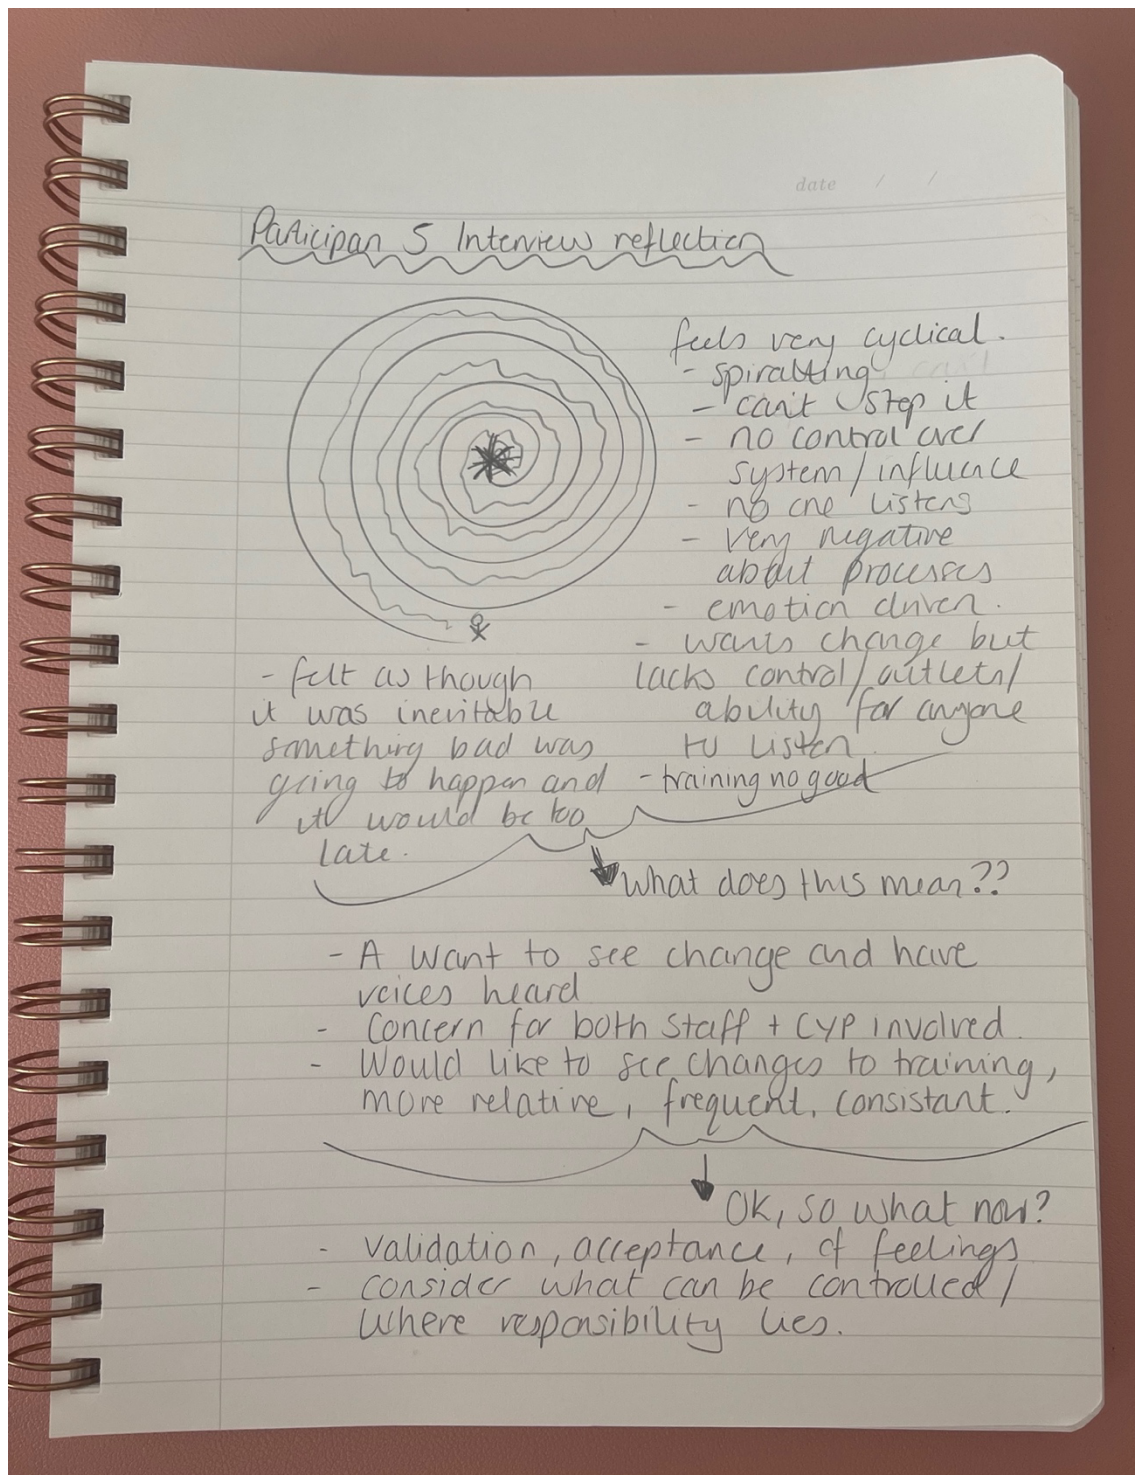 date / /
Participan 5 Interview reflection
feels very cyclical.
- spiralling
- can't stop it
- no control over
system/influence
- no one listens
- very negative
about processes
- emotion driven.
- wants change but
lacks control/outlets/
ability for anyone
to listen
- training no good
- felt as though
it was inevitable
something bad was
going to happen and
it would be too
late.
What does this mean??
- A want to see change and have
voices heard
- Concern for both staff + CYP involved.
- Would like to see changes to training,
more relative, frequent, consistant.
OK, so what now?
- Validation, acceptance, of feelings
- consider what can be controlled/
where responsibility lies.